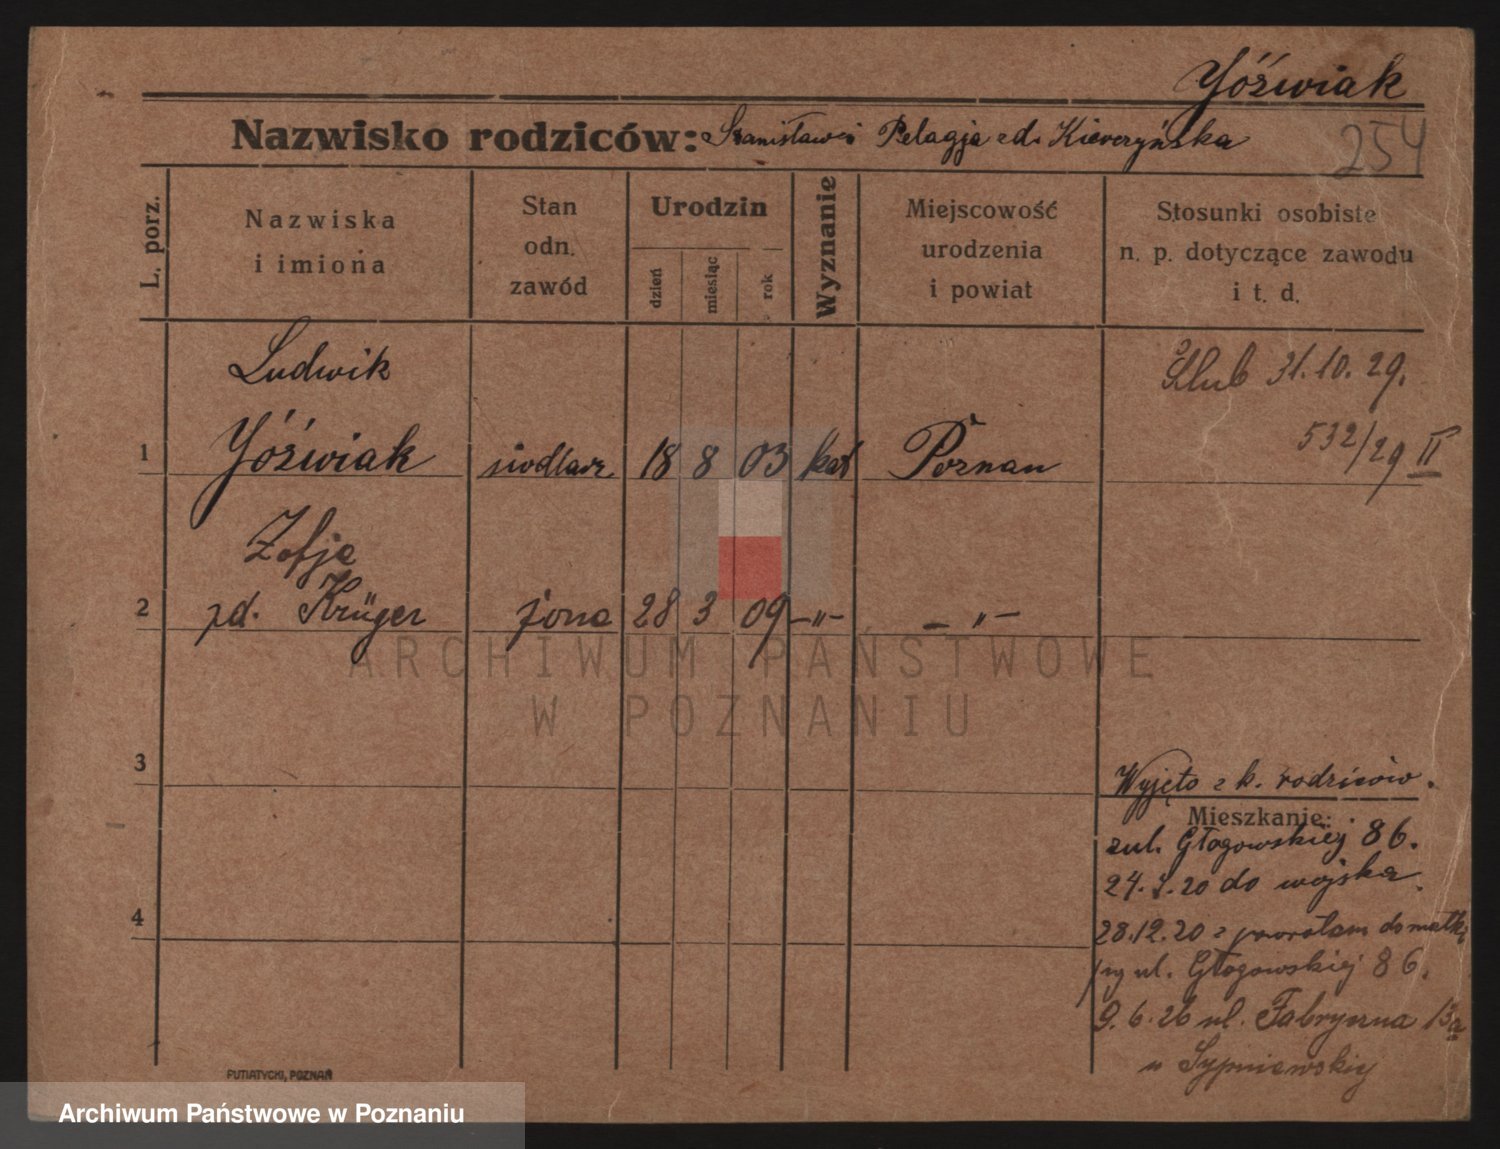 Yóźwiak
Nazwisko rodziców: Stanisław i Pelagja zd. Kieverzyńska
254
L. porz.
Nazwiska i imiona
Stan odn. zawód
Urodzin
dzień
miesiąc
rok
Wyznanie
Miejscowość urodzenia i powiat
Stosunki osobiste n. p. dotyczące zawodu i t. d.
Ludwik
Ślub 31.10.29.
532/29 II
1 Yóźwiak siodlarz 18 8 03 kat Poznań
Zofja
2 zd. Krüger żona 28 3 09 -"- -"-
ARCHIWUM PAŃSTWOWE
W POZNANIU
3
Wyjęto z k. rodziców.
Mieszkanie:
z ul. Głogowskiej 86.
24.7.20 do wojska.
4
28.12.20 z powrotem do matki
przy ul. Głogowskiej 86.
9.6.26 ul. Fabryczna 13a
u Sypniewskiej
PUTIATYCKI, POZNAŃ
Archiwum Państwowe w Poznaniu